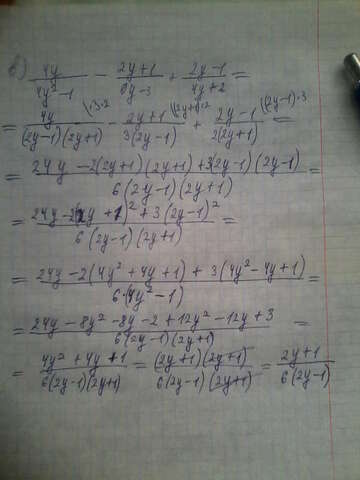 б) 4y/(4y²-1) - (2y+1)/(6y-3) + (2y-1)/(4y+2) =
= 4y\·3·2/((2y-1)(2y+1)) - (2y+1)\(2y+1)·2/(3(2y-1)) + (2y-1)\(2y-1)·3/(2(2y+1)) =
= (24y - 2(2y+1)(2y+1) + 3(2y-1)(2y-1))/(6(2y-1)(2y+1)) =
= (24y - 2(2y+1)² + 3(2y-1)²)/(6(2y-1)(2y+1)) =
= (24y - 2(4y²+4y+1) + 3(4y²-4y+1))/(6·(4y²-1)) =
= (24y - 8y² - 8y - 2 + 12y² - 12y + 3)/(6(2y-1)(2y+1)) =
= (4y²+4y+1)/(6(2y-1)(2y+1)) = (2y+1)(2y+1)/(6(2y-1)(2y+1)) = (2y+1)/(6(2y-1))